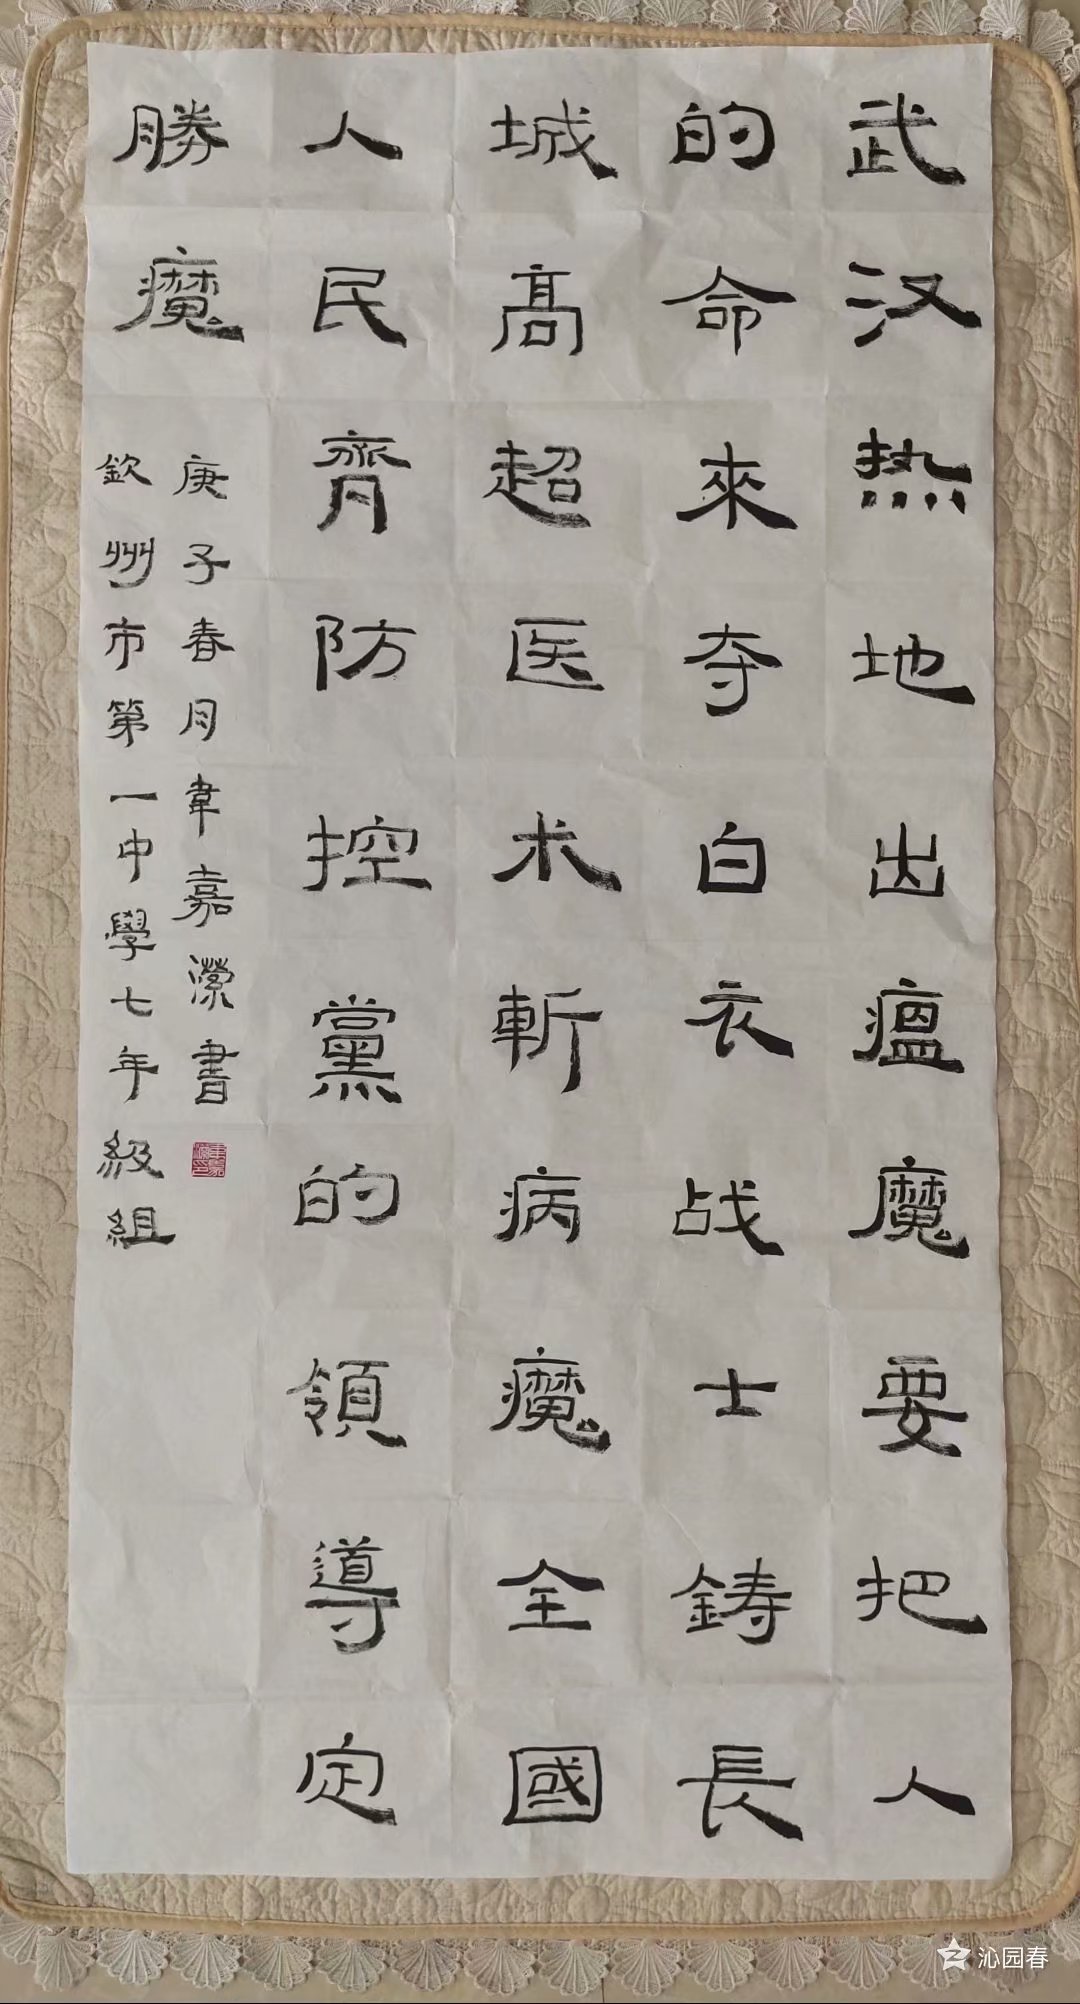 武汉热地出瘟魔要把人
的命來夺白衣战士鋳長
城高超医术斬病魔全國
人民齊防控黨的領導定
勝魔
庚子春月韋嘉瀠書
欽州市第一中學七年級組
沁园春